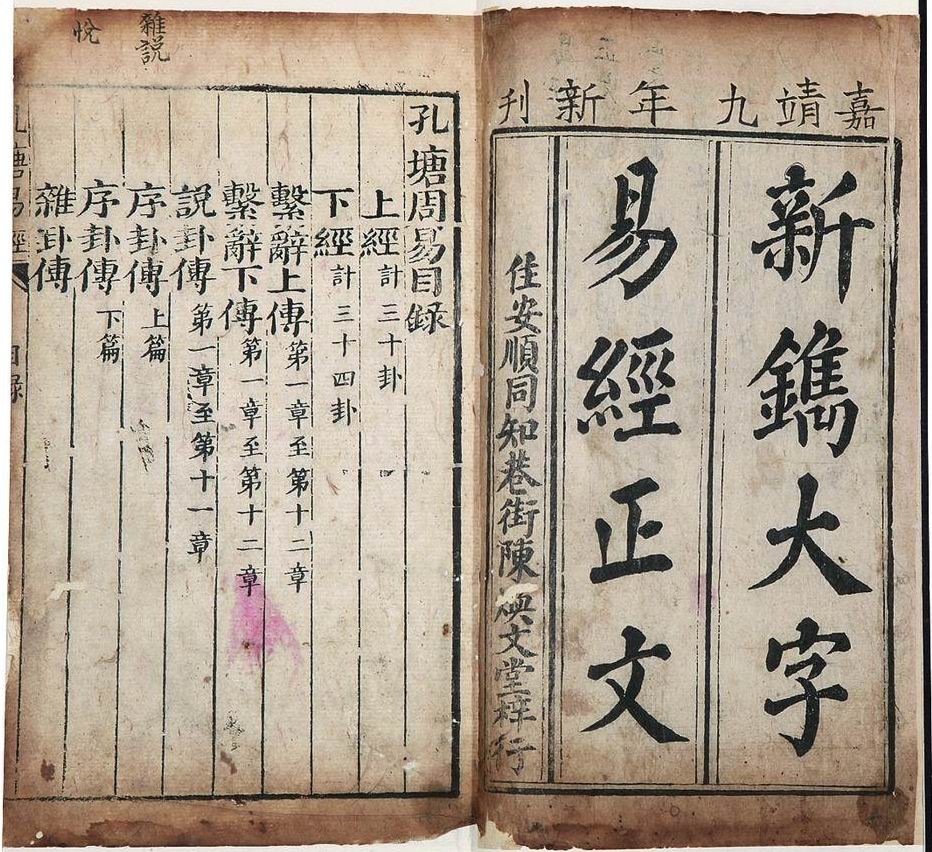 嘉靖九年新刊
新鐫大字
易經正文
住安順同知巷街陳煥文堂梓行
孔塘周易目錄
上經計三十卦
下經計三十四卦
繫辭上傳第一章至第十二章
繫辭下傳第一章至第十二章
說卦傳第一章至第十一章
序卦傳上篇
序卦傳下篇
雜卦傳
雜説
悅